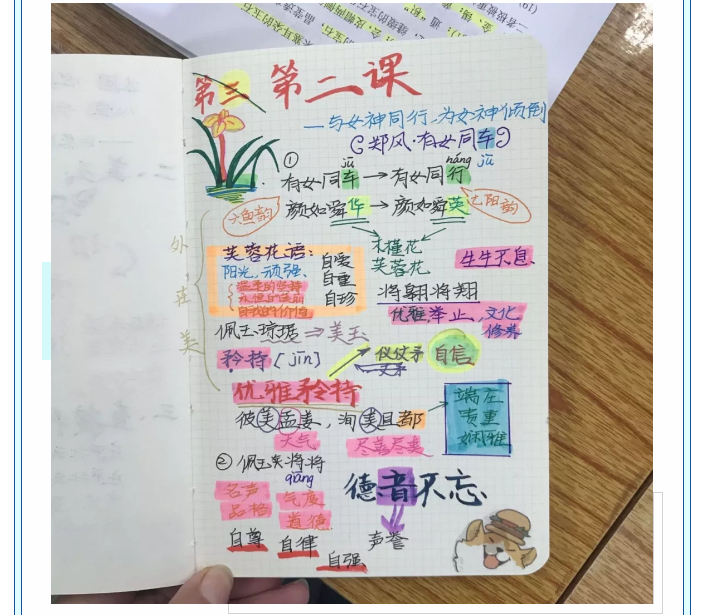 第三 第二课
—与女神同行,为女神倾倒
《郑风·有女同车》
① jū háng jū
有女同车→有女同行
六鱼韵 颜如舜华→颜如舜英 七阳韵
木槿花
芙蓉花
芙蓉花语:
阳光,顽强、
自爱
自重
自珍
温柔的坚持
永恒的美丽
自我的价值
生生不息、
将翱将翔
优雅举止,文化
修养
外
在
美
佩玉琼琚⇒美玉
矜持[jīn]
仪仗矛
自信
优雅矜持
彼美孟姜,洵美且都
大气 尽善尽美
端庄
贵重
娴雅
② 佩玉将将
qiāng
名声
品格
气度
道德
德音不忘
声誉
自尊
自律
自强